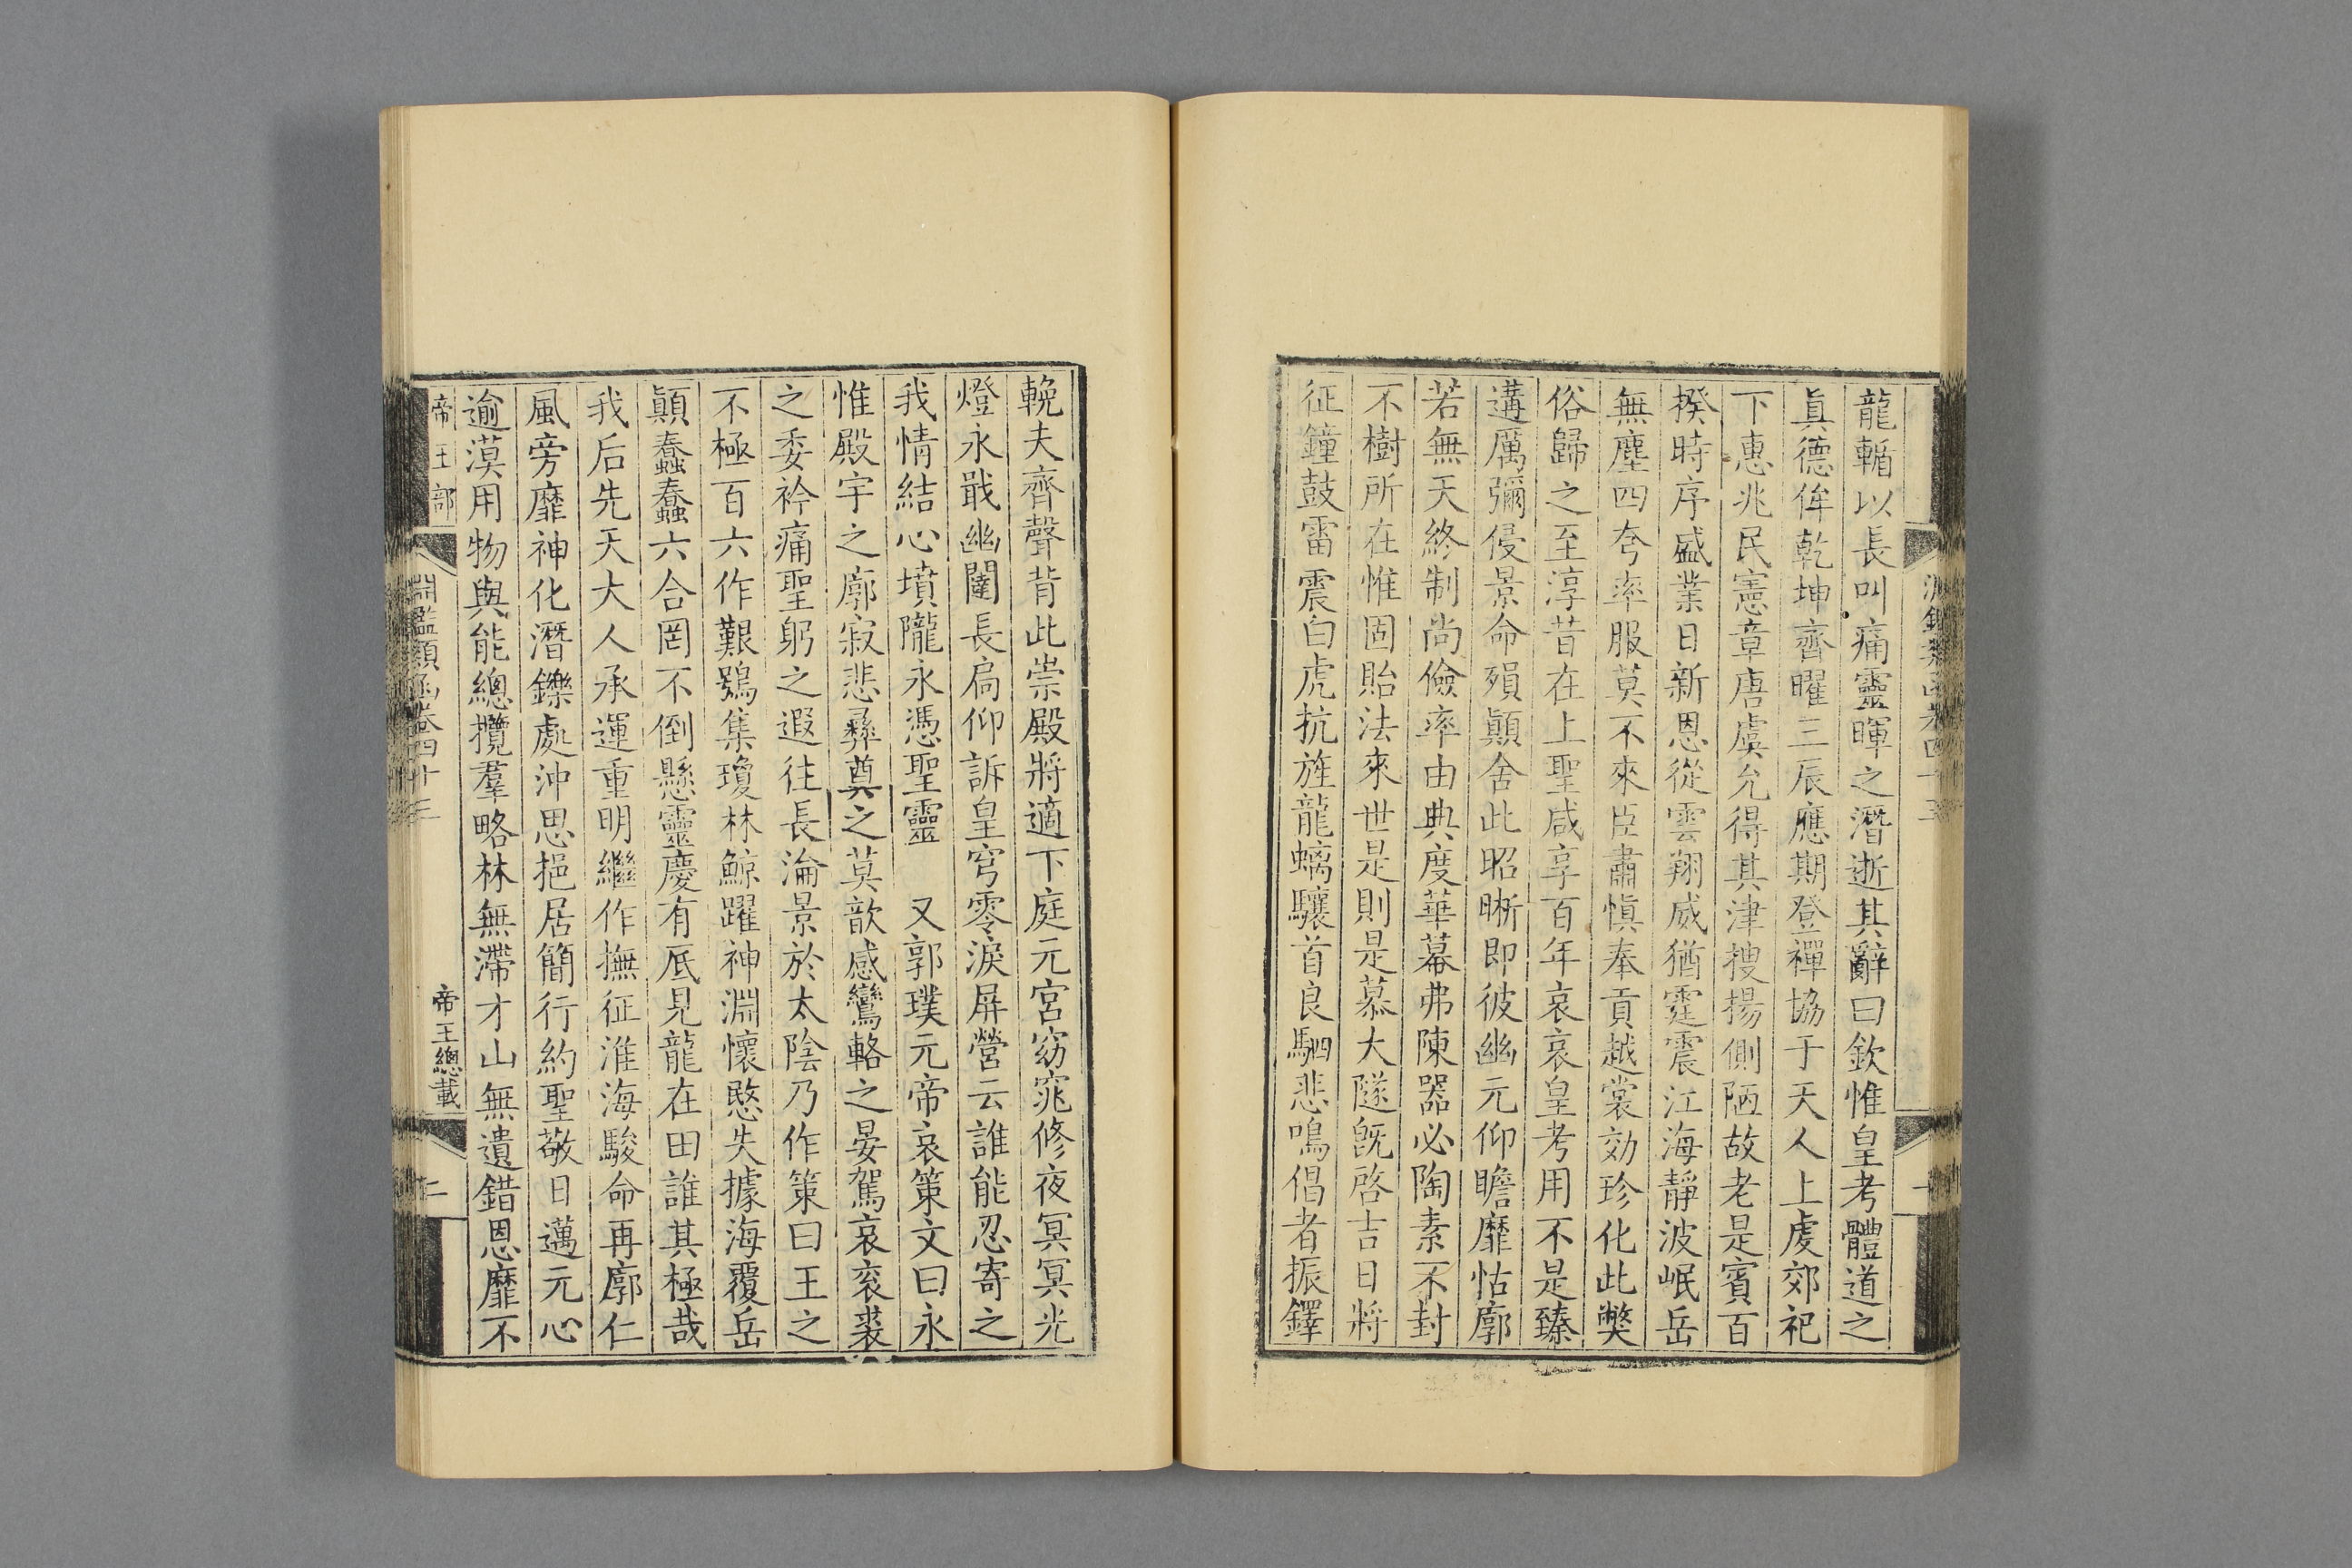 龍輴以長叫痛靈暉之潛逝其辭曰欽惟皇考體道之
眞德侔乾坤齊曜三辰應期登禪協于天人上虔郊祀
下惠兆民憲章唐虞允得其津搜揚側陋故老是賓百
揆時序盛業日新恩從雲翔威猶霆震江海靜波岷岳
無塵四夸率服莫不來臣肅愼奉貢越裳効珍化此獘
俗歸之至淳昔在上聖咸享百年哀哀皇考用不是臻
遘厲彌侵景命殞顚舍此昭晰即彼幽元仰瞻靡怙廓
若無天終制尚儉率由典度華幕弗陳器必陶素不封
不樹所在惟固貽法來世是則是慕大隧旣啓吉日將
征鐘鼓雷震白虎抗旌龍螭驤首良駟悲鳴倡者振鐸
輓夫齊聲背此崇殿將適下庭元宮窈窕修夜冥冥光
燈永戢幽闥長扃仰訴皇穹零淚屏營云誰能忍寄之
我情結心墳隴永憑聖靈 又郭璞元帝哀策文曰永
惟殿宇之廓寂悲彞奠之莫歆感鸞輅之晏駕哀衮裘
之委衿痛聖躬之遐往長淪景於太陰乃作策曰王之
不極百六作艱鴞集瓊林鯨躍神淵懷愍失據海覆岳
顚蠢蠢六合罔不倒懸靈慶有厎見龍在田誰其極哉
我后先天大人承運重明繼作撫征淮海駿命再廓仁
風旁靡神化潛鑠處沖思挹居簡行約聖敬日邁元心
逾漠用物與能總攬羣略林無滯才山無遺錯恩靡不
帝王部 淵鑑類函卷四十三 帝王總載 二